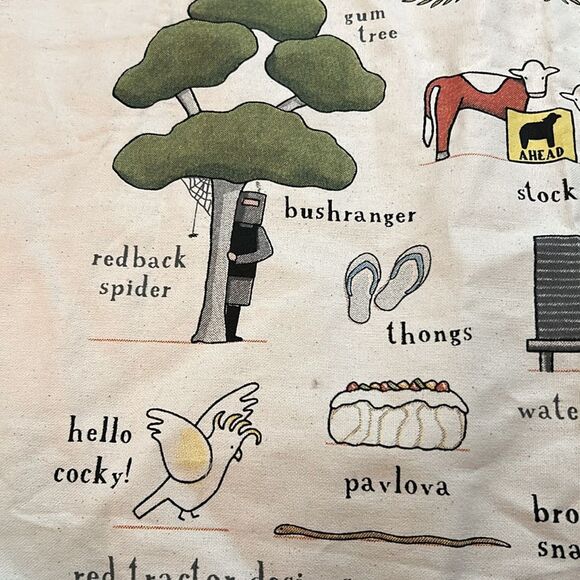 gum
tree
AHEAD
stock
bushranger
redback
spider
thongs
hello
cocky!
pavlova
wate
bro
sna
red tractor desi